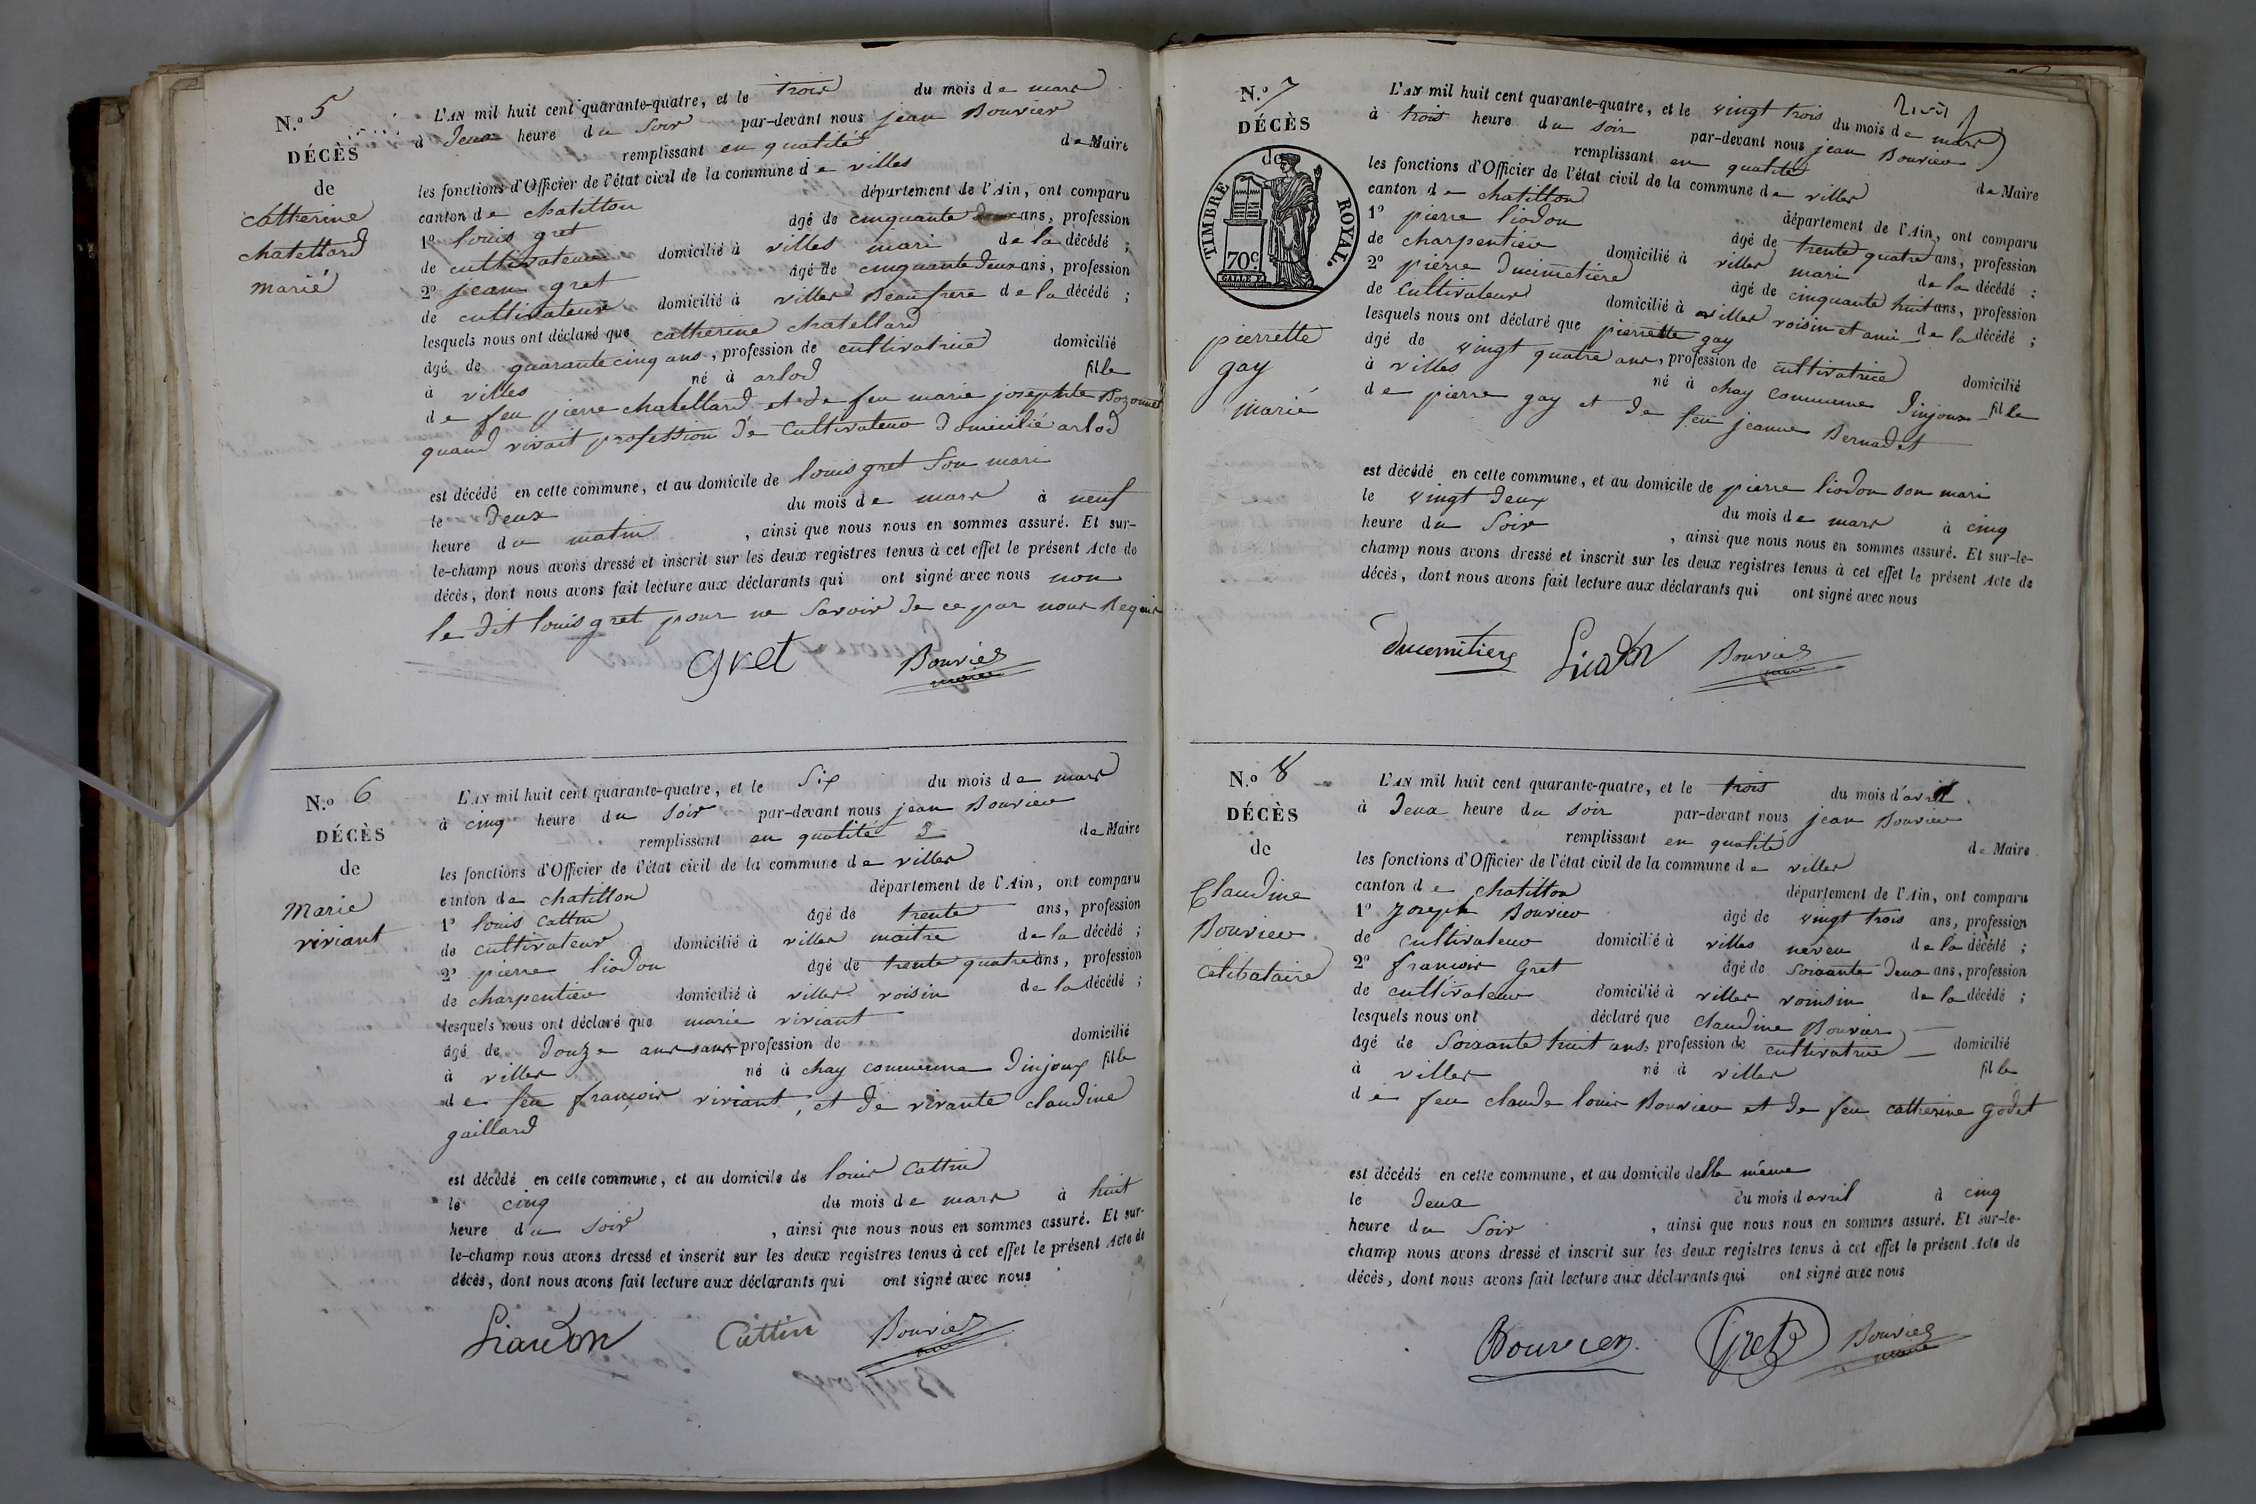 N.o 5
DÉCÈS
de
catherine
chatellard
marié
L'AN mil huit cent quarante-quatre, et le trois du mois de mars
à deux heure du soir par-devant nous jean Bouvier
remplissant en qualité de Maire
les fonctions d'Officier de l'état civil de la commune de villes
canton de chatillon département de l'Ain, ont comparu
1o louis gret âgé de cinquante ans, profession
de cultivateur domicilié à villes mari de la décédé ;
2o jean gret âgé de cinquante deux ans, profession
de cultivateur domicilié à villes Beaufrere de la décédé ;
lesquels nous ont déclaré que catherine chatellard
âgé de quarante cinq ans, profession de cultivatrice domicilié
à villes né à arlod fille
de feu pierre chatellard et de feu marie josephte Bozonnet
quand vivait profession de cultivateur domicilié arlod
est décédé en cette commune, et au domicile de louis gret son mari
le deux du mois de mars à neuf
heure du matin, ainsi que nous nous en sommes assuré. Et sur-
le-champ nous avons dressé et inscrit sur les deux registres tenus à cet effet le présent Acte de
décès, dont nous avons fait lecture aux déclarants qui ont signé avec nous non
le dit louis gret pour ne savoir de ce par nous Requis
gret Bouvier
maire
N.o 6
DÉCÈS
de
Marie
viviant
L'AN mil huit cent quarante-quatre, et le six du mois de mars
à cinq heure du soir par-devant nous jean Bouvier
remplissant en qualité de Maire
les fonctions d'Officier de l'état civil de la commune de villes
canton de chatillon département de l'Ain, ont comparu
1o louis cattin âgé de trente ans, profession
de cultivateur domicilié à villes maitre de la décédé ;
2o pierre liodon âgé de trente quatre ans, profession
de charpentier domicilié à villes voisin de la décédé ;
lesquels nous ont déclaré que marie viviant
âgé de douze ans sans profession de domicilié
à villes né à chay commune d'injoux fille
de feu françois viviant, et de vivante claudine
gaillard
est décédé en cette commune, et au domicile de louis cattin
le cinq du mois de mars à huit
heure du soir, ainsi que nous nous en sommes assuré. Et sur-
le-champ nous avons dressé et inscrit sur les deux registres tenus à cet effet le présent Acte de
décès, dont nous avons fait lecture aux déclarants qui ont signé avec nous
Liaudon Cattin Bouvier
maire
N.o 7
DÉCÈS
de
TIMBRE ROYAL.
70c.
pierrette
gay
marié
L'AN mil huit cent quarante-quatre, et le vingt trois du mois de mars
à trois heure du soir par-devant nous jean Bouvier
remplissant en qualité de Maire
les fonctions d'Officier de l'état civil de la commune de villes
canton de chatillon département de l'Ain, ont comparu
1o pierre liodon âgé de trente quatre ans, profession
de charpentier domicilié à villes mari de la décédé ;
2o pierre ducimetiere âgé de cinquante huit ans, profession
de cultivateur domicilié à villes voisin et ami de la décédé ;
lesquels nous ont déclaré que pierrette gay
âgé de vingt quatre ans, profession de cultivatrice domicilié
à villes né à chay commune d'injoux fille
de pierre gay et de feu jeanne Bernadet
est décédé en cette commune, et au domicile de pierre liodon son mari
le vingt deux du mois de mars à cinq
heure du soir, ainsi que nous nous en sommes assuré. Et sur-le-
champ nous avons dressé et inscrit sur les deux registres tenus à cet effet le présent Acte de
décès, dont nous avons fait lecture aux déclarants qui ont signé avec nous
Bouvier
maire
N.o 8
DÉCÈS
de
Claudine
Bouvier
célibataire
L'AN mil huit cent quarante-quatre, et le trois du mois d'avril
à deux heure du soir par-devant nous jean Bouvier
remplissant en qualité de Maire
les fonctions d'Officier de l'état civil de la commune de villes
canton de chatillon département de l'Ain, ont comparu
1o Joseph Bouvier âgé de vingt trois ans, profession
de cultivateur domicilié à villes neveu de la décédé ;
2o françois Gret âgé de soixante deux ans, profession
de cultivateur domicilié à villes voinsin de la décédé ;
lesquels nous ont déclaré que claudine Bouvier
âgé de soixante huit ans, profession de cultivatrice domicilié
à villes né à villes fille
de feu claude louis Bouvier et de feu catherine godet
est décédé en cette commune, et au domicile delle même
le deux du mois d'avril à cinq
heure du soir, ainsi que nous nous en sommes assuré. Et sur-le-
champ nous avons dressé et inscrit sur les deux registres tenus à cet effet le présent Acte de
décès, dont nous avons fait lecture aux déclarants qui ont signé avec nous
Bouvier Gret Bouvier
maire